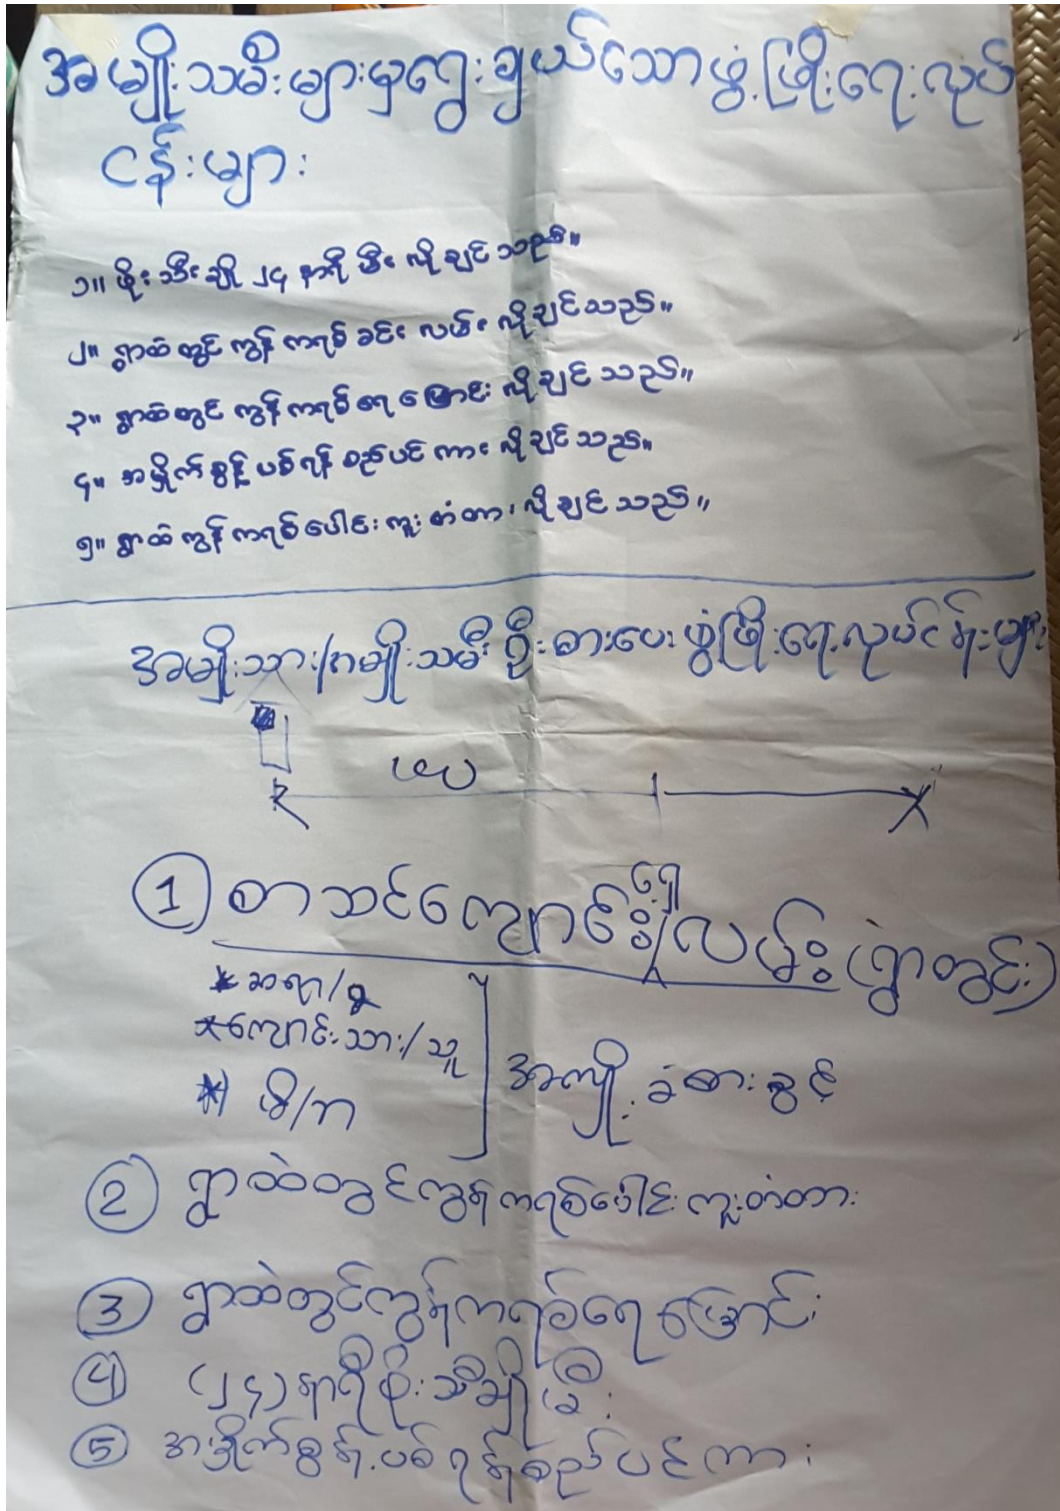 အမျိုးသမီးများမှရွေးချယ်သောဖွံ့ဖြိုးရေးလုပ်
ငန်းများ
၁။ ဖိုးသီးချို ၂၄ နာရီ မီး လိုချင်သည်။
၂။ ရွာထဲတွင် ကွန်ကရစ်ခင်းလမ်း လိုချင်သည်။
၃။ ရွာထဲတွင် ကွန်ကရစ်ရေမြောင်း လိုချင်သည်။
၄။ အမှိုက်စွန့်ပစ်ရန် စည်ပင်ကား လိုချင်သည်။
၅။ ရွာထဲ ကွန်ကရစ်ပေါင်းကူးတံတား လိုချင်သည်။
အမျိုးသား/အမျိုးသမီး ဦးစားပေးဖွံ့ဖြိုးရေးလုပ်ငန်းများ
ရှေ့
1 စာသင်ကျောင်း လမ်း (ရွာတွင်း)
* ဆရာ/မ
* ကျောင်းသား/သူ
* မိ/ဘ
အကျိုးခံစားခွင့်
2 ရွာထဲတွင်ကွန်ကရစ်ပေါင်းကူးတံတား
3 ရွာထဲတွင်ကွန်ကရစ်ရေမြောင်း
4 (၂၄) နာရီဖိုးသီးချိုမီး
5 အမှိုက်စွန့်ပစ်ရန်စည်ပင်ကား